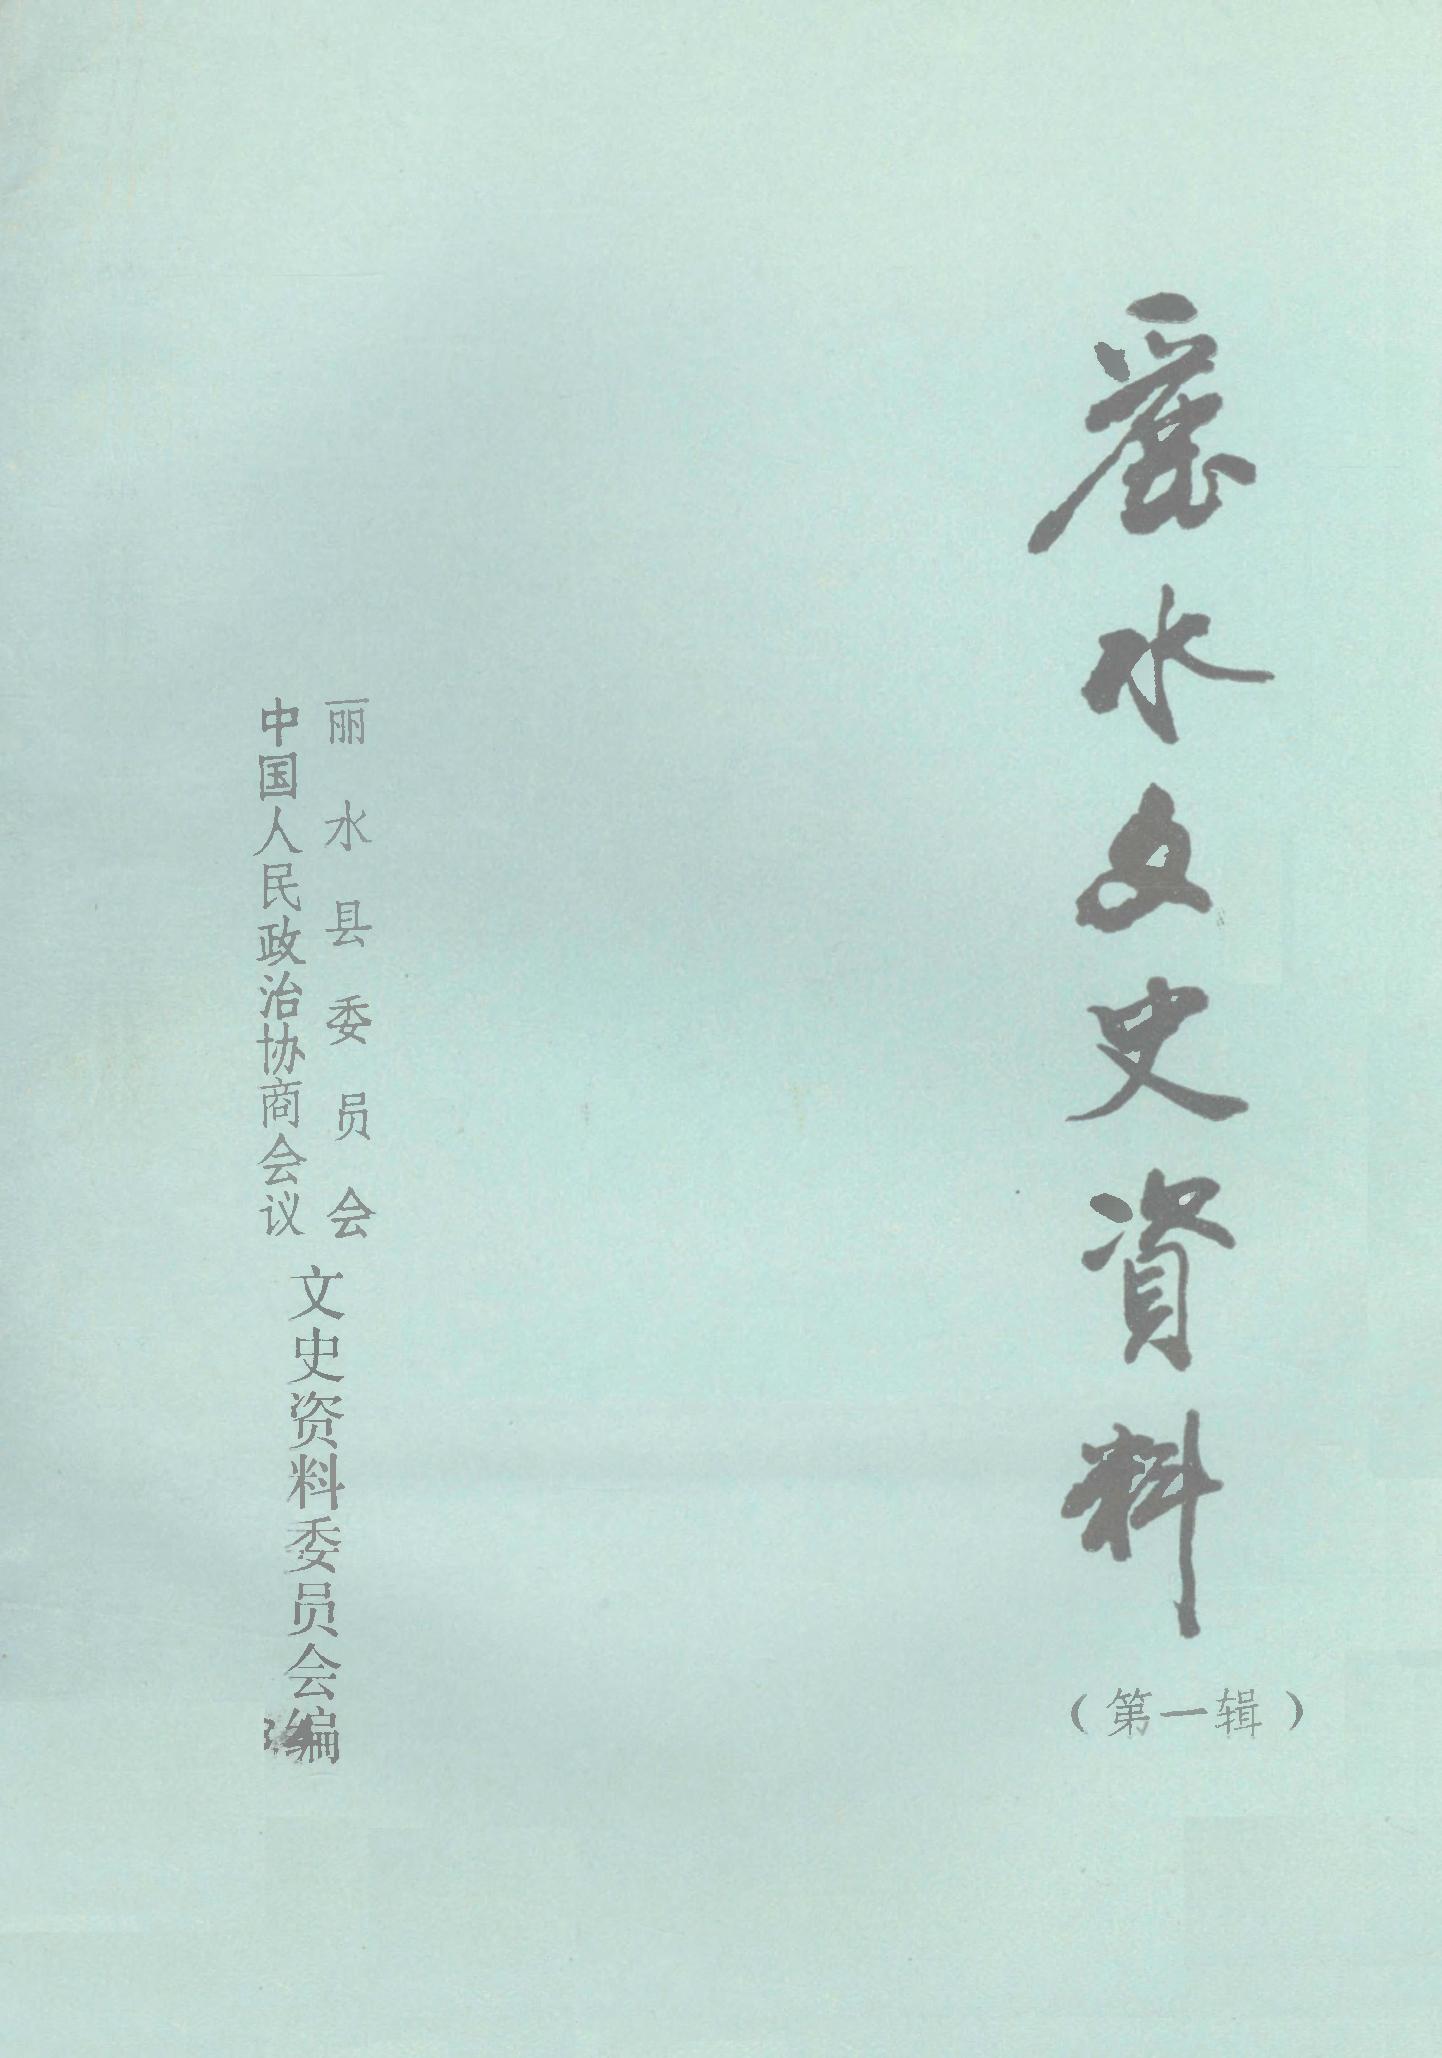 麗水文史資料
（第一辑）
丽水县委员会
中国人民政治协商会议
文史资料委员会编